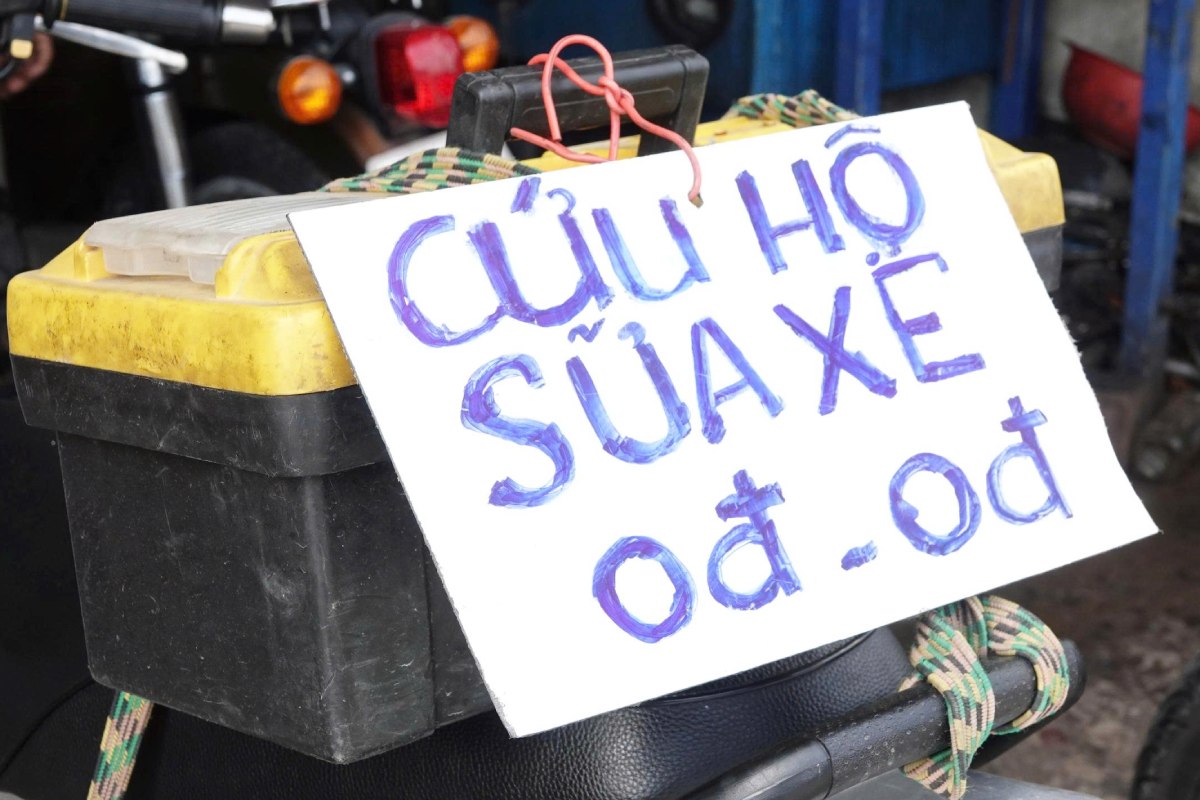 CỨU HỘ
SỮA XE
0đ - 0đ